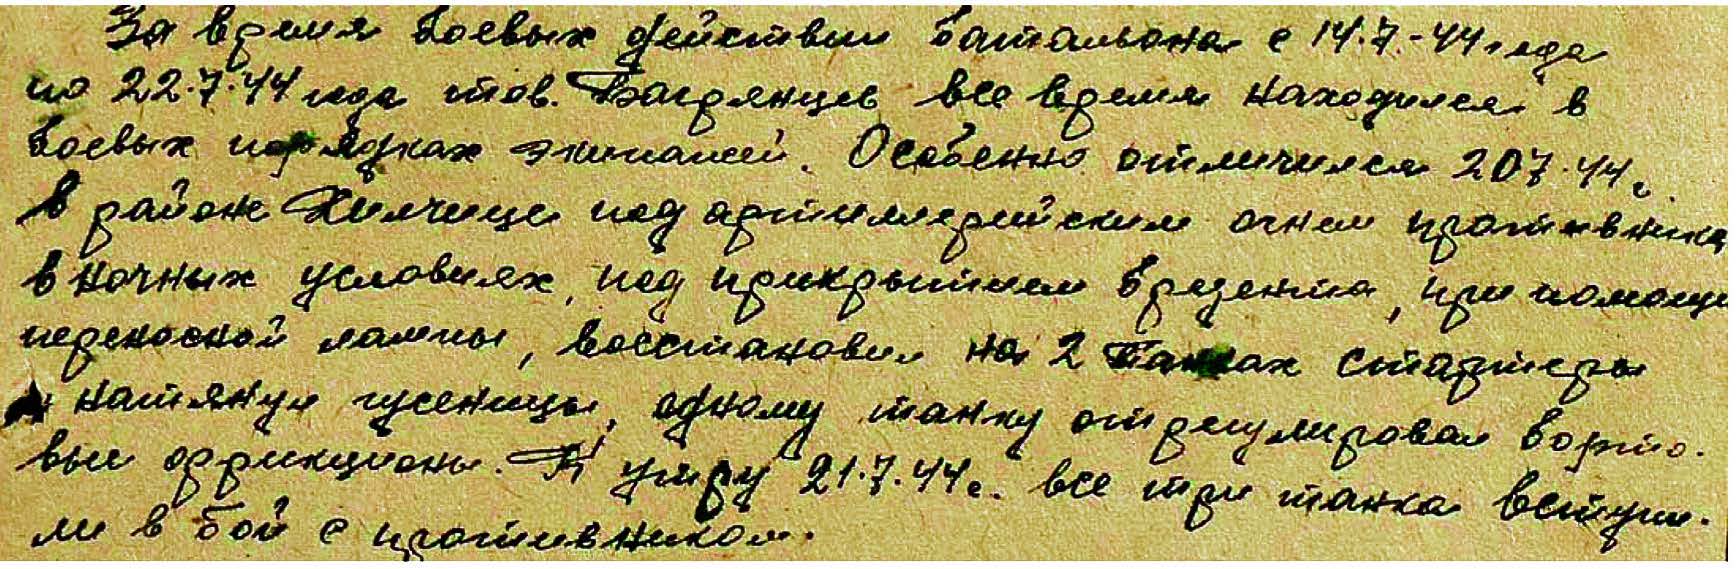 За время боевых действий батальона с 14.7.-44 года
по 22.7.44 года тов. Багрянцев все время находился в
боевых порядках экипажей. Особенно отличился 20 7.44 г.
В районе Хильчице под артиллерийским огнем противника,
в ночных условиях, под прикрытием брезента, при помощи
переносной лампы, восстановил на 2 танках стартеры
и натянул гусеницы, одному танку отрегулировал борто-
вые фрикционы. К утру 21.7.44 г. все три танка вступи-
ли в бой с противником.